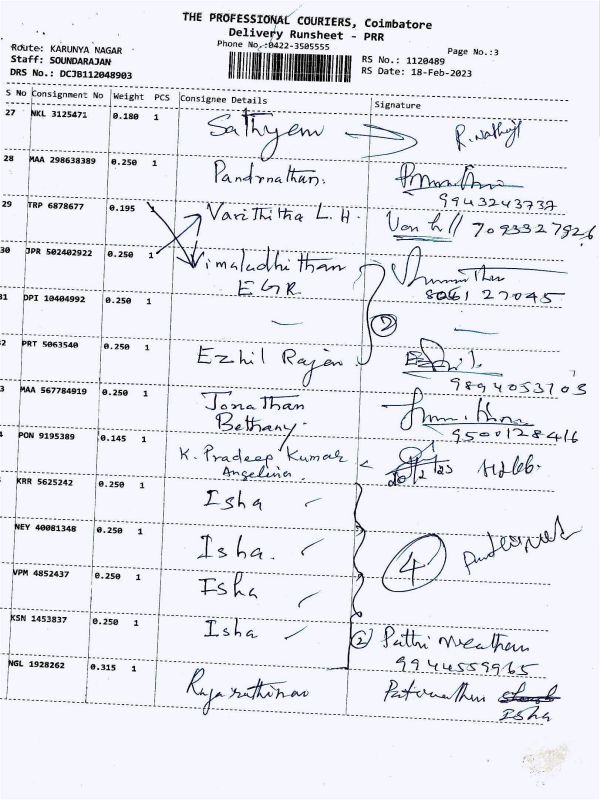 THE PROFESSIONAL COURIERS, Coimbatore
Delivery Runsheet - PRR
Phone No.:0422-3505555
Page No.:3
Route: KARUNYA NAGAR
Staff: SOUNDARAJAN
DRS No.: DCJB112048903
RS No.: 1120489
RS Date: 18-Feb-2023
S No Consignment No Weight PCS Consignee Details Signature
27 NKL 3125471 0.180 1 Sathyem
28 MAA 298638389 0.250 1 Pandrnathan.
9943243737
29 TRP 6878677 0.195 1 Varithitha L.H. 7093327926
30 JPR 502402922 0.250 1 Vimaladhithan
EGR 8061 27045
31 DPI 10404992 0.250 1 —
2
32 PRT 5063540 0.250 1 Ezhil Rajan
9894053703
3 MAA 567784919 0.250 1 Jonathan
Bethany. 9500128416
4 PON 9195389 0.145 1 K. Pradeep Kumar
Angelina. 20/2/23
KRR 5625242 0.250 1 Isha
NEY 40081348 0.250 1 Isha. 4
VPM 4852437 0.250 1 Isha
KSN 1453837 0.250 1 Isha 2
9944559965
NGL 1928262 0.315 1 Rajarathinav
Isha